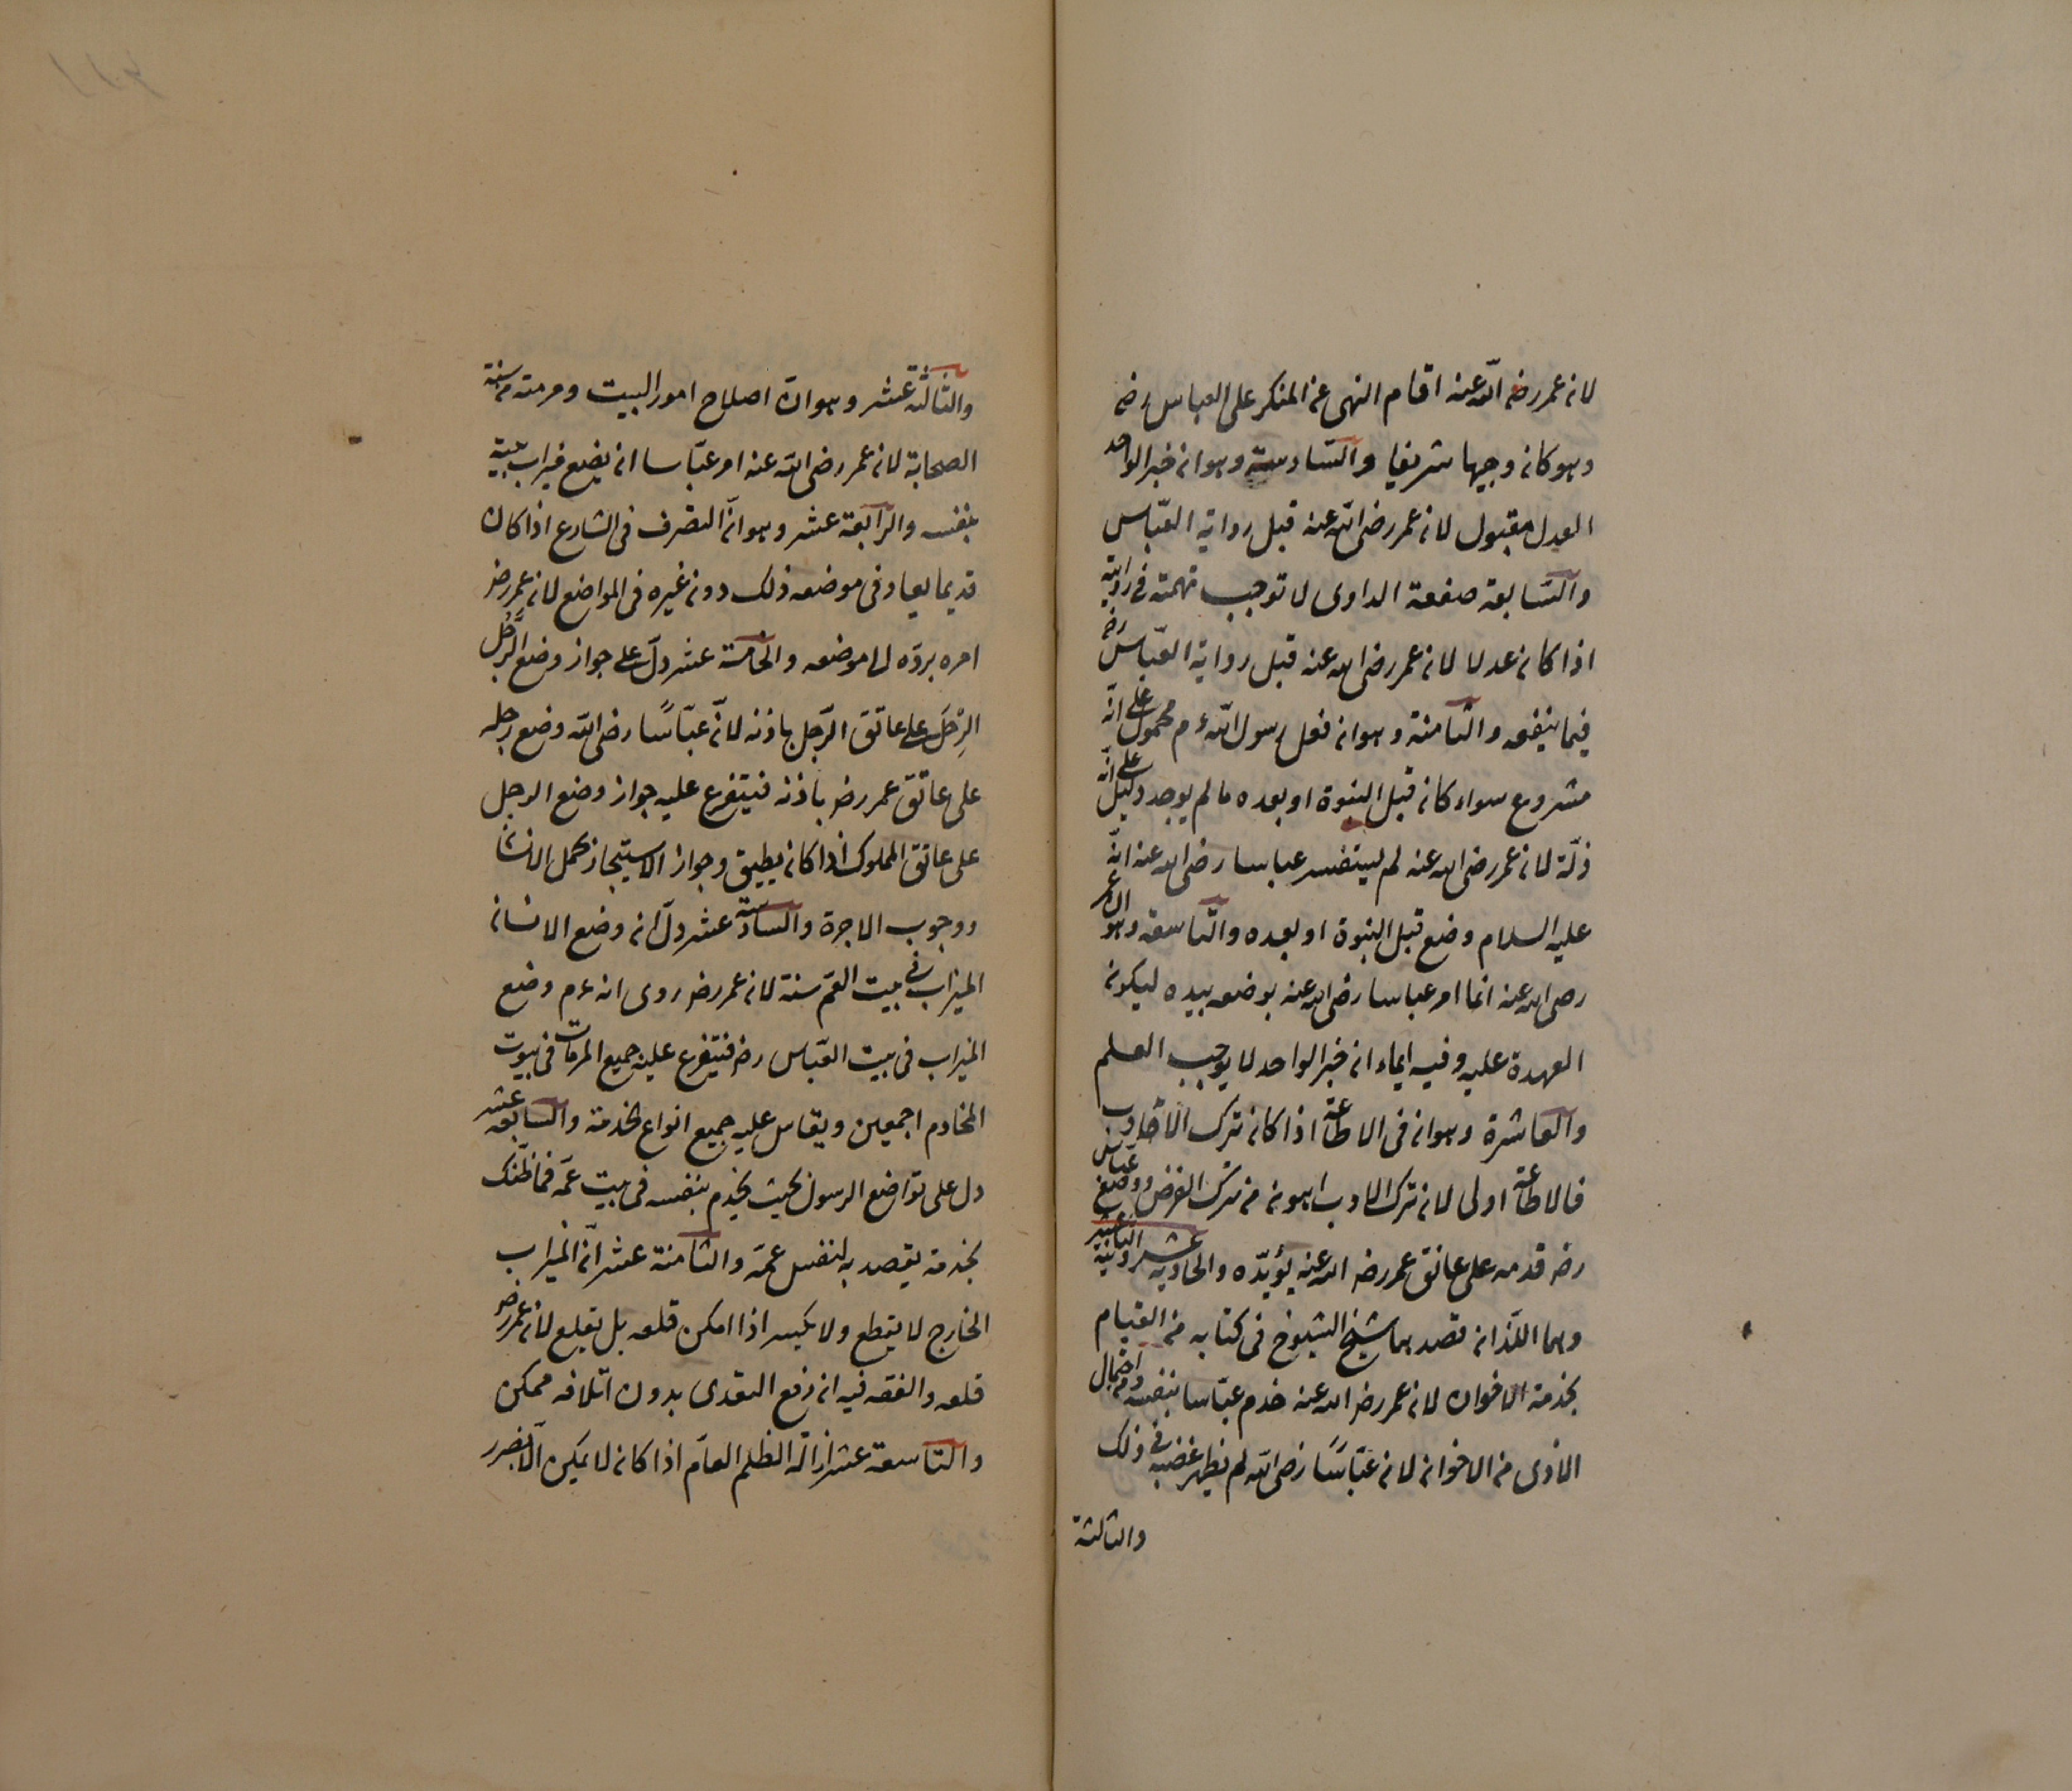 لان عمر رضى الله عنه اقام النهى عن المنكر على العباس رضه
وهو كان وجيها شريفا والسادسة وهو ان خبر الواحد
العدل مقبول لان عمر رضى الله عنه قبل رواية العبّاس
والسّابعة صفعة الداوى لا توجب تهمة فى روايته
اذا كان عدلا لان عمر رضى الله عنه قبل رواية العبّاس رضه
فيما ينفعه والثامنة وهو ان فعل رسول الله ءم محمول على انّه
مشروع سواء كان قبل النبوة او بعده ما لم يوجد دليل على انّه
زلّة لان عمر رضى الله عنه لم يستفسر عباسا رضى الله عنه انّه
عليه السلام وضع قبل النبوة او بعده والتّاسعة وهو ان عمر
رضى الله عنه انما امر عباسا رضى الله عنه بوضعه بيده ليكون
العهدة عليه وفيه ايماء ان خبر الواحد لا يوجب العلم
والعاشرة وهو ان فى الاطاعة اذا كان ترك الادب
فالاطاعة اولى لان ترك الادب اهون من ترك الفرض ووضع عباس
رضه قدمه على عاتق عمر رضه الله عنه يؤيّده والحادية عشر والثانية عشر
وهما اللّذان قصدهما شيخ الشيوخ فى كتابه من القيام
بخدمة الاخوان لان عمر رضه الله عنه خدم عبّاسا بنفسه واحتمال
الاذى من الاخوان لان عبّاسًا رضى الله لم يظهر غضبه فى ذلك
والثالثة
والثالثة عشر وهو انّ اصلاح امور البيت ومرمته من سنة
الصحابة لان عمر رضى الله عنه امر عبّاسا ان يضع ميزاب بيته
بنفسه والرّابعة عشر وهو انّ التصرف فى الشارع اذا كان
قديما يعاد فى موضعه ذلك دون غيره فى المواضع لان عمر رضه
امره بردّه الى موضعه والخامسة عشر دلّ على جواز وضع الرَّجُل
الرِجْلَ على عاتق الرّجل باذنه لانّ عبّاسًا رضى الله وضع رجله
على عاتق عمر رضه باذنه فيتفرع عليه جواز وضع الرجل
على عاتق المملوك اذا كان يطيق وجواز الاستيجار لحمل الانسان
ووجوب الاجرة والسادسة عشر دلّ ان وضع الانسان
الميزاب فى بيت العم سنة لان عمر رضه روى انه ءم وضع
الميزاب فى بيت العبّاس رضه فيتفرع عليه جميع المرمات فى بيوت
المخادم اجمعين ويقاس عليه جميع انواع الخدمة والسابعة عشر
دل على تواضع الرسول بحيث يخدم بنفسه فى بيت عمّه فما ظنّك
بخدمة يقصد به لنفس عمّه والثامنة عشر انّ الميزاب
الخارج لا يقطع ولا يكسر اذا امكن قلعه بل يقلع لان عمر رضه
قلعه والفقه فيه ان رفع التعدى بدون اتلافه ممكن
والتّاسعة عشر ازالة الظلم العام اذا كان لا يمكن الّا بضرر